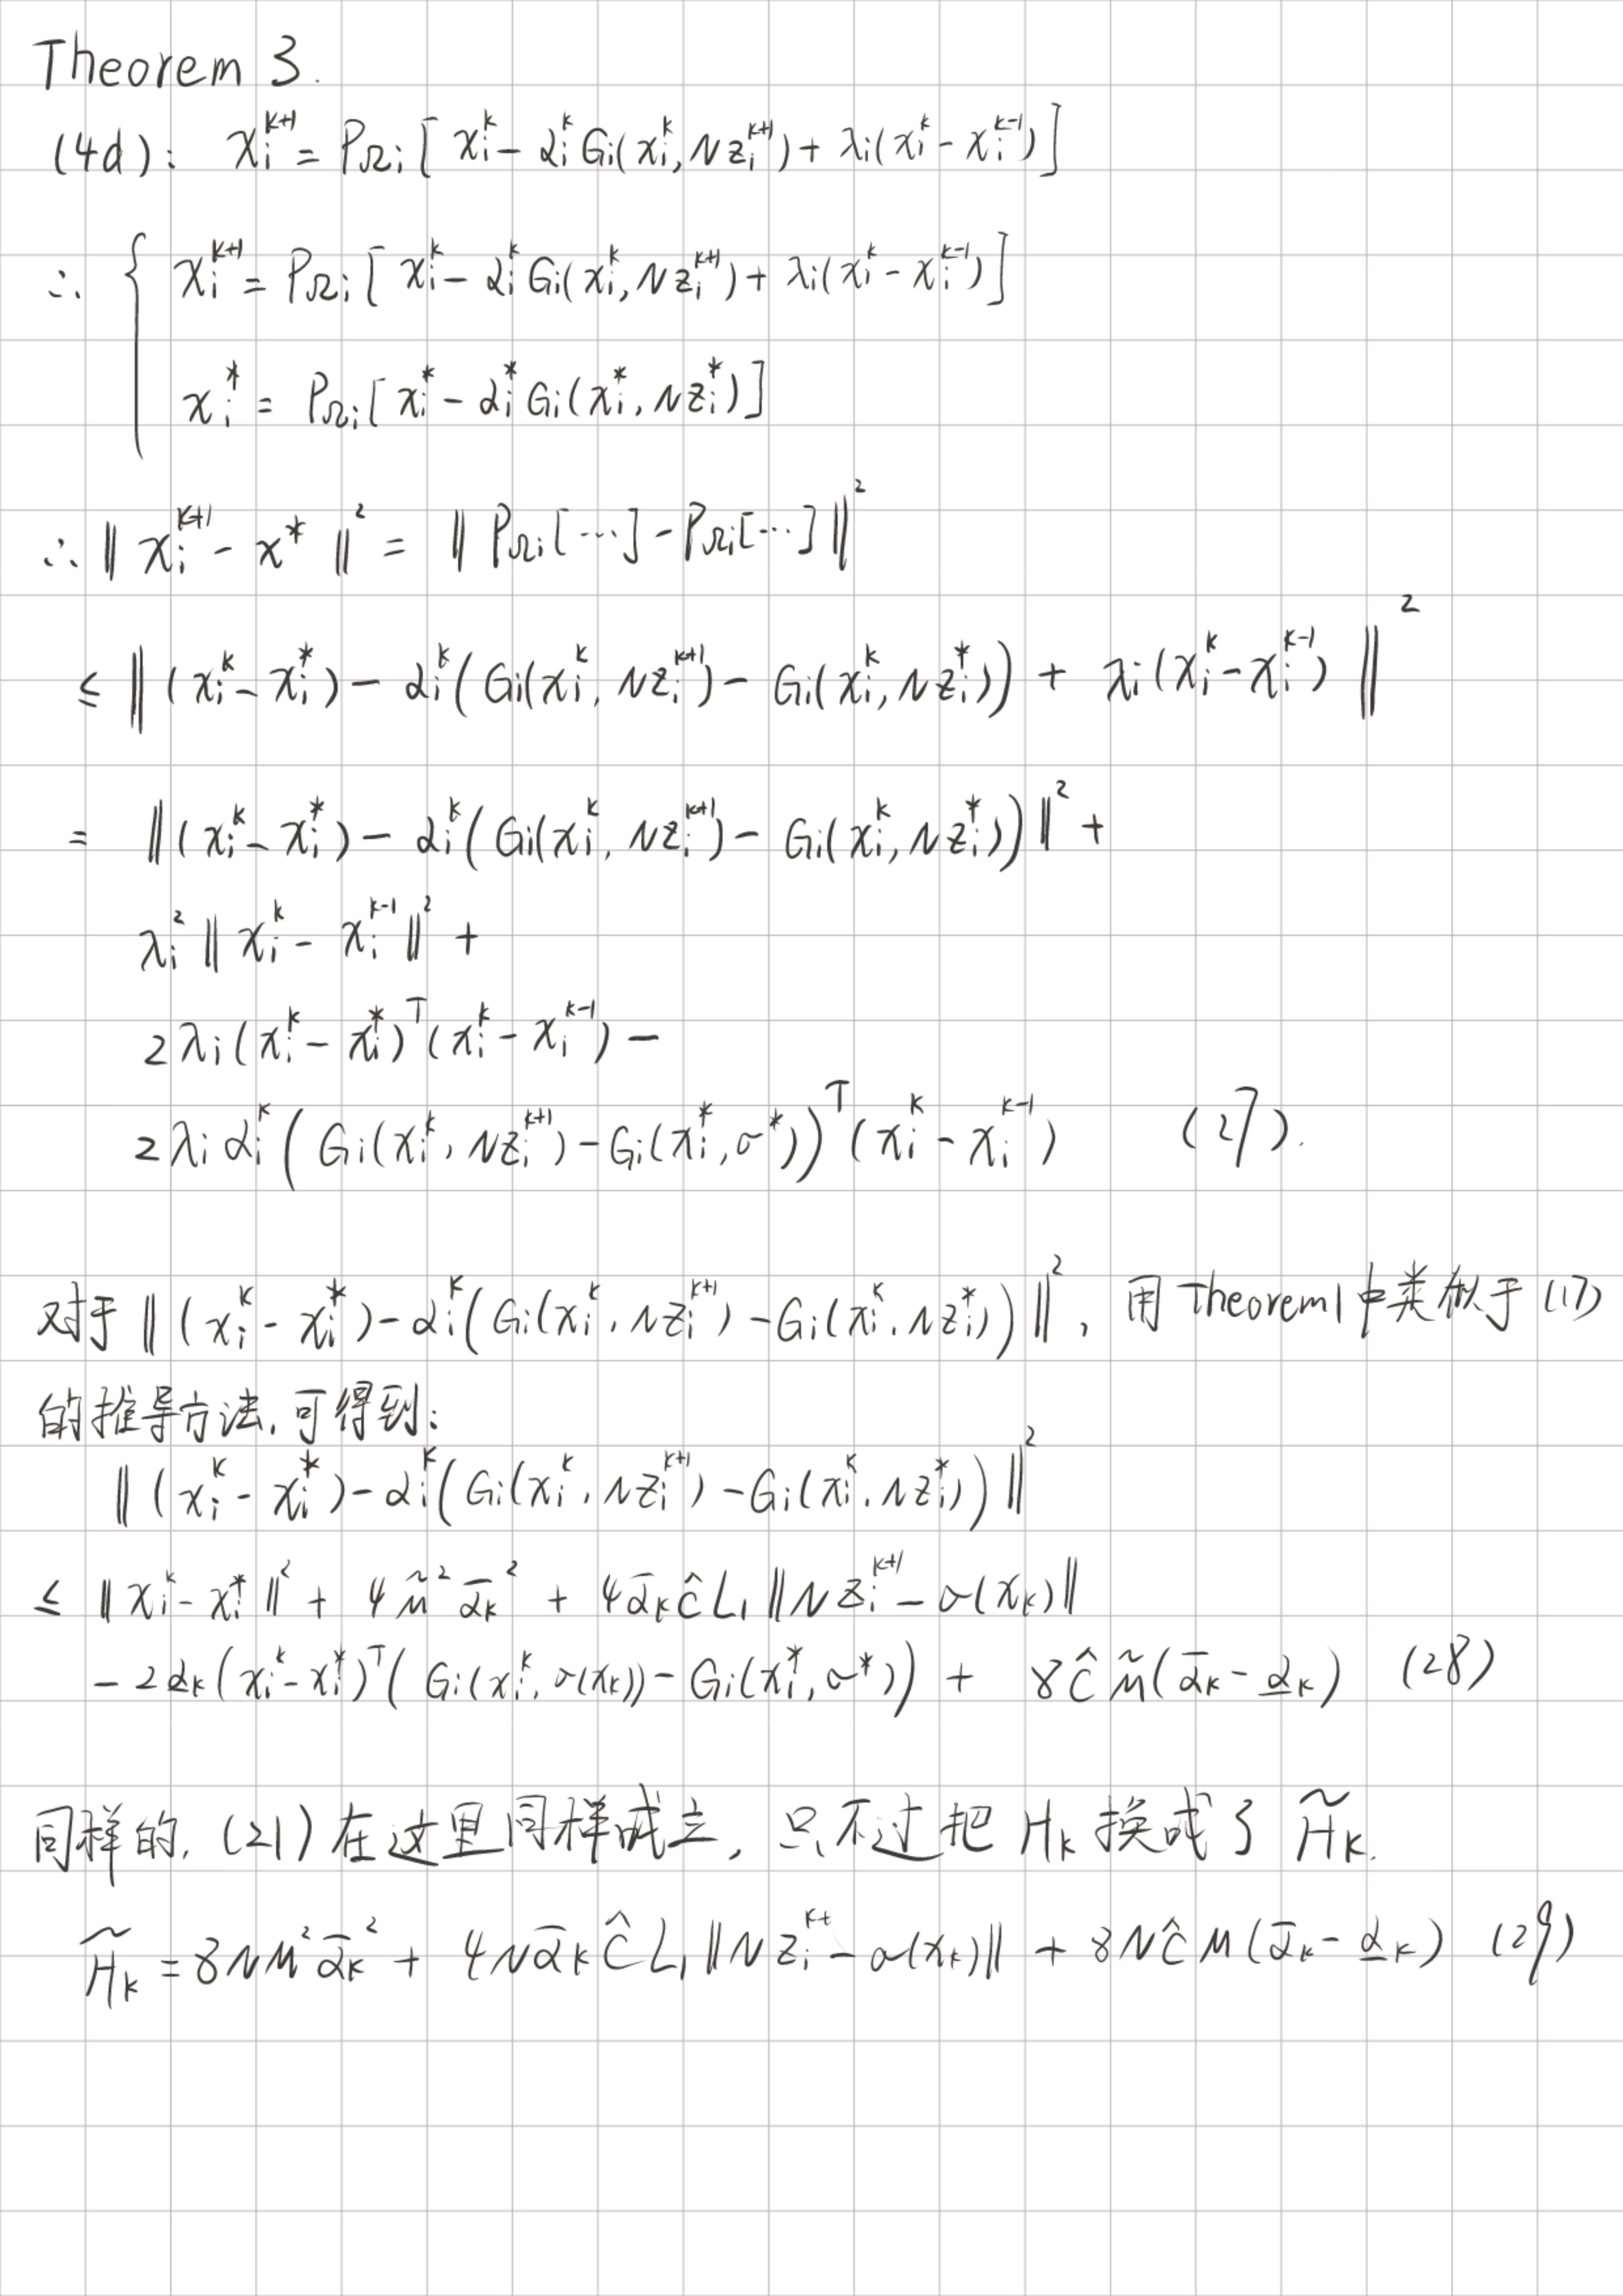 Theorem 3.
(4d): x_i^{k+1} = P_{Ω_i}[x_i^k - α_i^k G_i(x_i^k, Nz_i^{k+1}) + λ_i(x_i^k - x_i^{k-1})]
∴ { x_i^{k+1} = P_{Ω_i}[x_i^k - α_i^k G_i(x_i^k, Nz_i^{k+1}) + λ_i(x_i^k - x_i^{k-1})]
x_i^* = P_{Ω_i}[x_i^* - α_i^* G_i(x_i^*, Nz_i^*)]
∴ ‖x_i^{k+1} - x^*‖^2 = ‖P_{Ω_i}[⋯] - P_{Ω_i}[⋯]‖^2
≤ ‖(x_i^k - x_i^*) - α_i^k(G_i(x_i^k, Nz_i^{k+1}) - G_i(x_i^k, Nz_i^*)) + λ_i(x_i^k - x_i^{k-1})‖^2
= ‖(x_i^k - x_i^*) - α_i^k(G_i(x_i^k, Nz_i^{k+1}) - G_i(x_i^k, Nz_i^*))‖^2 +
λ_i^2 ‖x_i^k - x_i^{k-1}‖^2 +
2λ_i(x_i^k - x_i^*)^T(x_i^k - x_i^{k-1}) -
2λ_i α_i^k(G_i(x_i^k, Nz_i^{k+1}) - G_i(x_i^*, σ^*))^T(x_i^k - x_i^{k-1}) (27).
对于 ‖(x_i^k - x_i^*) - α_i^k(G_i(x_i^k, Nz_i^{k+1}) - G_i(x_i^k, Nz_i^*))‖^2, 用 Theorem1中类似于(17)
的推导方法, 可得到:
‖(x_i^k - x_i^*) - α_i^k(G_i(x_i^k, Nz_i^{k+1}) - G_i(x_i^k, Nz_i^*))‖^2
≤ ‖x_i^k - x_i^*‖^2 + 4M̃^2 ᾱ_k^2 + 4ᾱ_k Ĉ L_1 ‖Nz_i^{k+1} - σ(x_k)‖
- 2α_k(x_i^k - x_i^*)^T(G_i(x_i^k, σ(x_k)) - G_i(x_i^*, σ^*)) + 8Ĉ M̃(ᾱ_k - α̲_k) (28)
同样的, (21)在这里同样成立, 只不过把 H_k 换成了 H̃_k.
H̃_k = 8NM^2 ᾱ_k^2 + 4Nᾱ_k Ĉ L_1 ‖Nz_i^{k+} - σ(x_k)‖ + 8NĈM(ᾱ_k - α̲_k) (29)